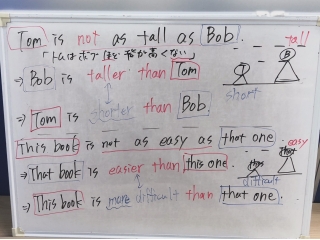 Tom is not as tall as Bob.
「トムはボブほど背が高くない」
⇒ Bob is taller than Tom
⇒ Tom is shorter than Bob.
This book is not as easy as that one.
⇒ That book is easier than this one.
⇒ This book is more difficult than that one.
tall
B
short
easy
difficult